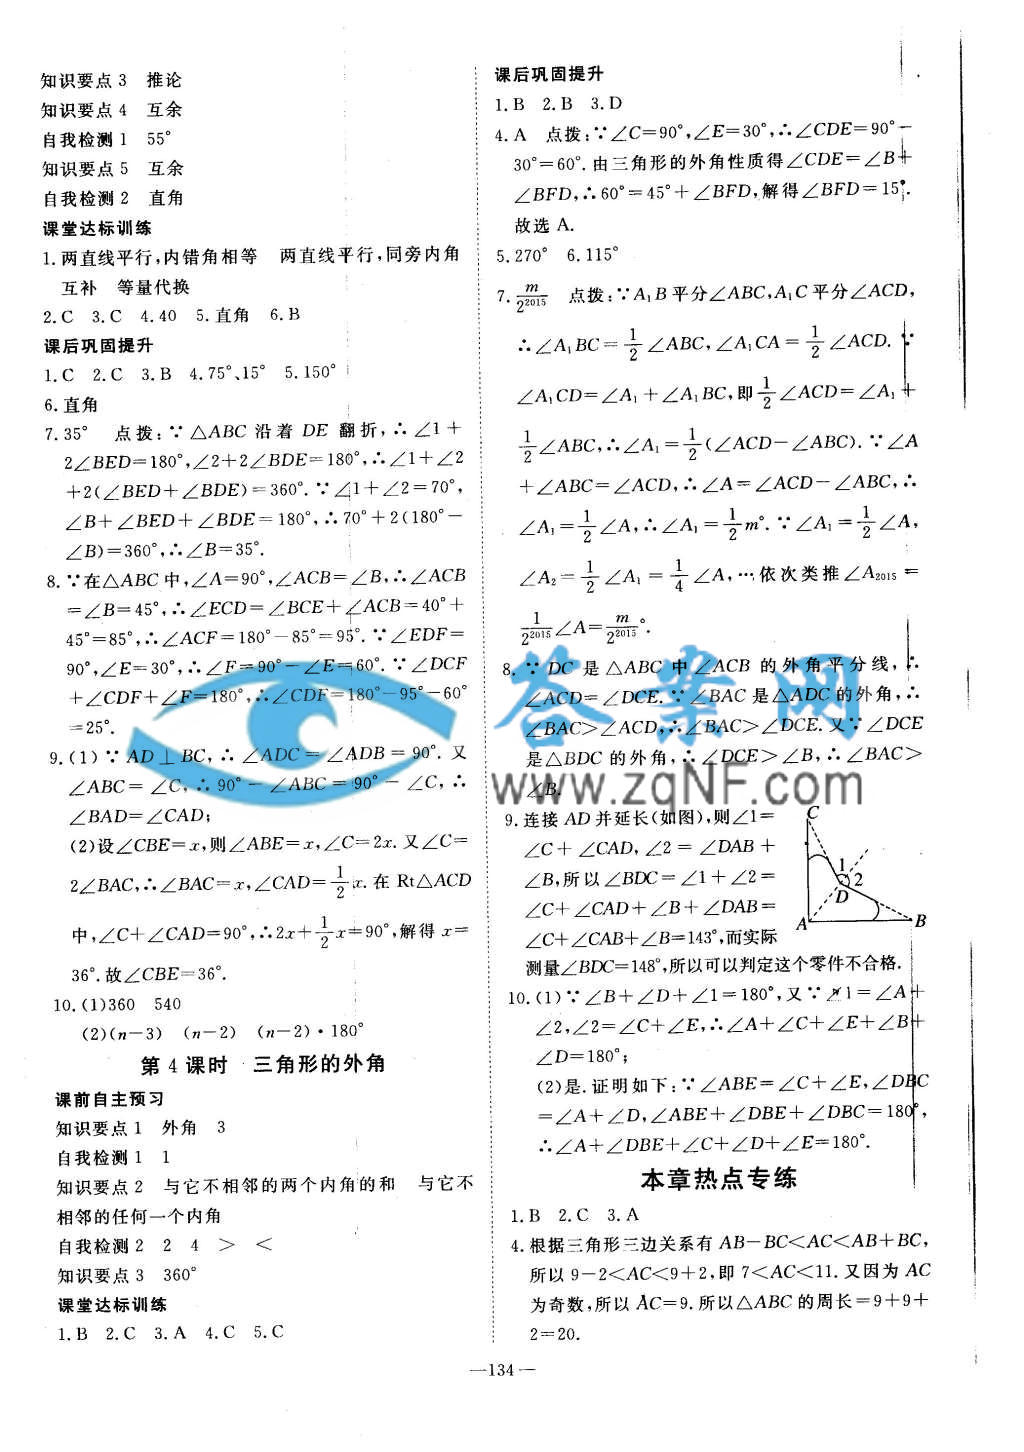 知识要点 3　推论
知识要点 4　互余
自我检测 1　55°
知识要点 5　互余
自我检测 2　直角
课堂达标训练
1.两直线平行,内错角相等　两直线平行,同旁内角
互补　等量代换
2.C　3.C　4.40　5.直角　6.B
课后巩固提升
1.C　2.C　3.B　4.75°、15°　5.150°
6.直角
7.35°　点拨:∵△ABC 沿着 DE 翻折,∴∠1+
2∠BED=180°,∠2+2∠BDE=180°,∴∠1+∠2
+2(∠BED+∠BDE)=360°.∵∠1+∠2=70°,
∠B+∠BED+∠BDE=180°,∴70°+2(180°-
∠B)=360°,∴∠B=35°.
8.∵在△ABC 中,∠A=90°,∠ACB=∠B,∴∠ACB
=∠B=45°,∴∠ECD=∠BCE+∠ACB=40°+
45°=85°,∴∠ACF=180°-85°=95°.∵∠EDF=
90°,∠E=30°,∴∠F=90°-∠E=60°.∵∠DCF
+∠CDF+∠F=180°,∴∠CDF=180°-95°-60°
=25°.
9.(1)∵AD⊥BC,∴∠ADC=∠ADB=90°.又
∠ABC=∠C,∴90°-∠ABC=90°-∠C,∴
∠BAD=∠CAD;
(2)设∠CBE=x,则∠ABE=x,∠C=2x.又∠C=
2∠BAC,∴∠BAC=x,∠CAD=1/2x.在 Rt△ACD
中,∠C+∠CAD=90°,∴2x+1/2x=90°,解得 x=
36°.故∠CBE=36°.
10.(1)360　540
(2)(n-3)　(n-2)　(n-2)·180°
第 4 课时　三角形的外角
课前自主预习
知识要点 1　外角　3
自我检测 1　1
知识要点 2　与它不相邻的两个内角的和　与它不
相邻的任何一个内角
自我检测 2　2　4　>　<
知识要点 3　360°
课堂达标训练
1.B　2.C　3.A　4.C　5.C
课后巩固提升
1.B　2.B　3.D
4.A　点拨:∵∠C=90°,∠E=30°,∴∠CDE=90°-
30°=60°.由三角形的外角性质得∠CDE=∠B+
∠BFD,∴60°=45°+∠BFD,解得∠BFD=15°.
故选 A.
5.270°　6.115°
7.m/2²⁰¹⁵　点拨:∵A₁B 平分∠ABC,A₁C 平分∠ACD,
∴∠A₁BC=1/2∠ABC,∠A₁CA=1/2∠ACD.∵
∠A₁CD=∠A₁+∠A₁BC,即1/2∠ACD=∠A₁+
1/2∠ABC,∴∠A₁=1/2(∠ACD-∠ABC).∵∠A
+∠ABC=∠ACD,∴∠A=∠ACD-∠ABC,∴
∠A₁=1/2∠A,∴∠A₁=1/2m°.∵∠A₁=1/2∠A,
∠A₂=1/2∠A₁=1/4∠A,…依次类推∠A₂₀₁₅=
1/2²⁰¹⁵∠A=m/2²⁰¹⁵°.
8.∵DC 是△ABC 中∠ACB 的外角平分线,∴
∠ACD=∠DCE.∵∠BAC 是△ADC 的外角,∴
∠BAC>∠ACD,∴∠BAC>∠DCE.又∵∠DCE
是△BDC 的外角,∴∠DCE>∠B,∴∠BAC>
∠B.
9.连接 AD 并延长(如图),则∠1=
∠C+∠CAD,∠2=∠DAB+
∠B,所以∠BDC=∠1+∠2=
∠C+∠CAD+∠B+∠DAB=
∠C+∠CAB+∠B=143°,而实际
测量∠BDC=148°,所以可以判定这个零件不合格.
C
1
2
D
A
B
10.(1)∵∠B+∠D+∠1=180°,又∵∠1=∠A+
∠2,∠2=∠C+∠E,∴∠A+∠C+∠E+∠B+
∠D=180°;
(2)是.证明如下:∵∠ABE=∠C+∠E,∠DBC
=∠A+∠D,∠ABE+∠DBE+∠DBC=180°,
∴∠A+∠DBE+∠C+∠D+∠E=180°.
本章热点专练
1.B　2.C　3.A
4.根据三角形三边关系有 AB-BC<AC<AB+BC,
所以 9-2<AC<9+2,即 7<AC<11.又因为 AC
为奇数,所以 AC=9.所以△ABC 的周长=9+9+
2=20.
—134—
答案网
www.zqNF.com